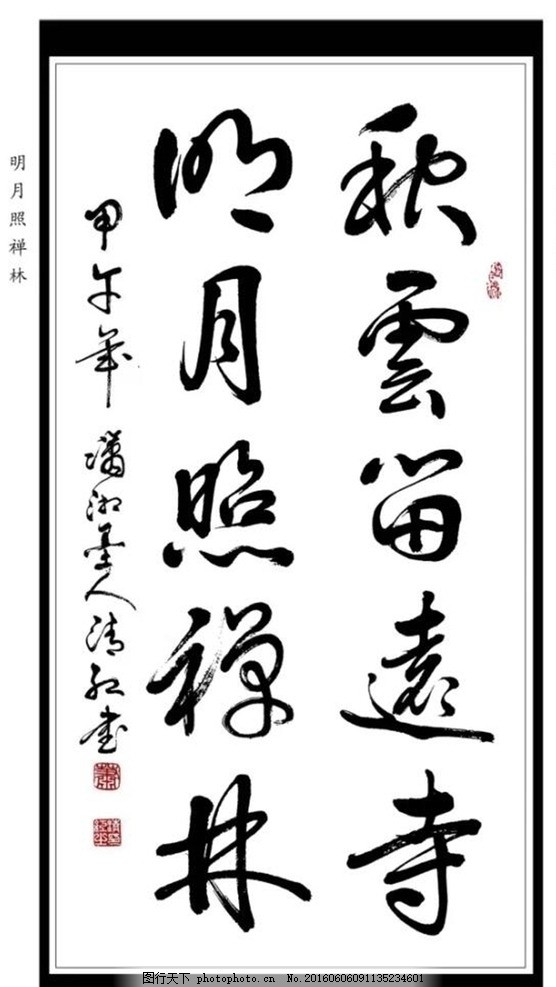 秋雲留遠寺
明月照禅林
甲午年 瀟湘墨人清红书
明月照禅林
图行天下 photophoto.cn No.20160606091135234601